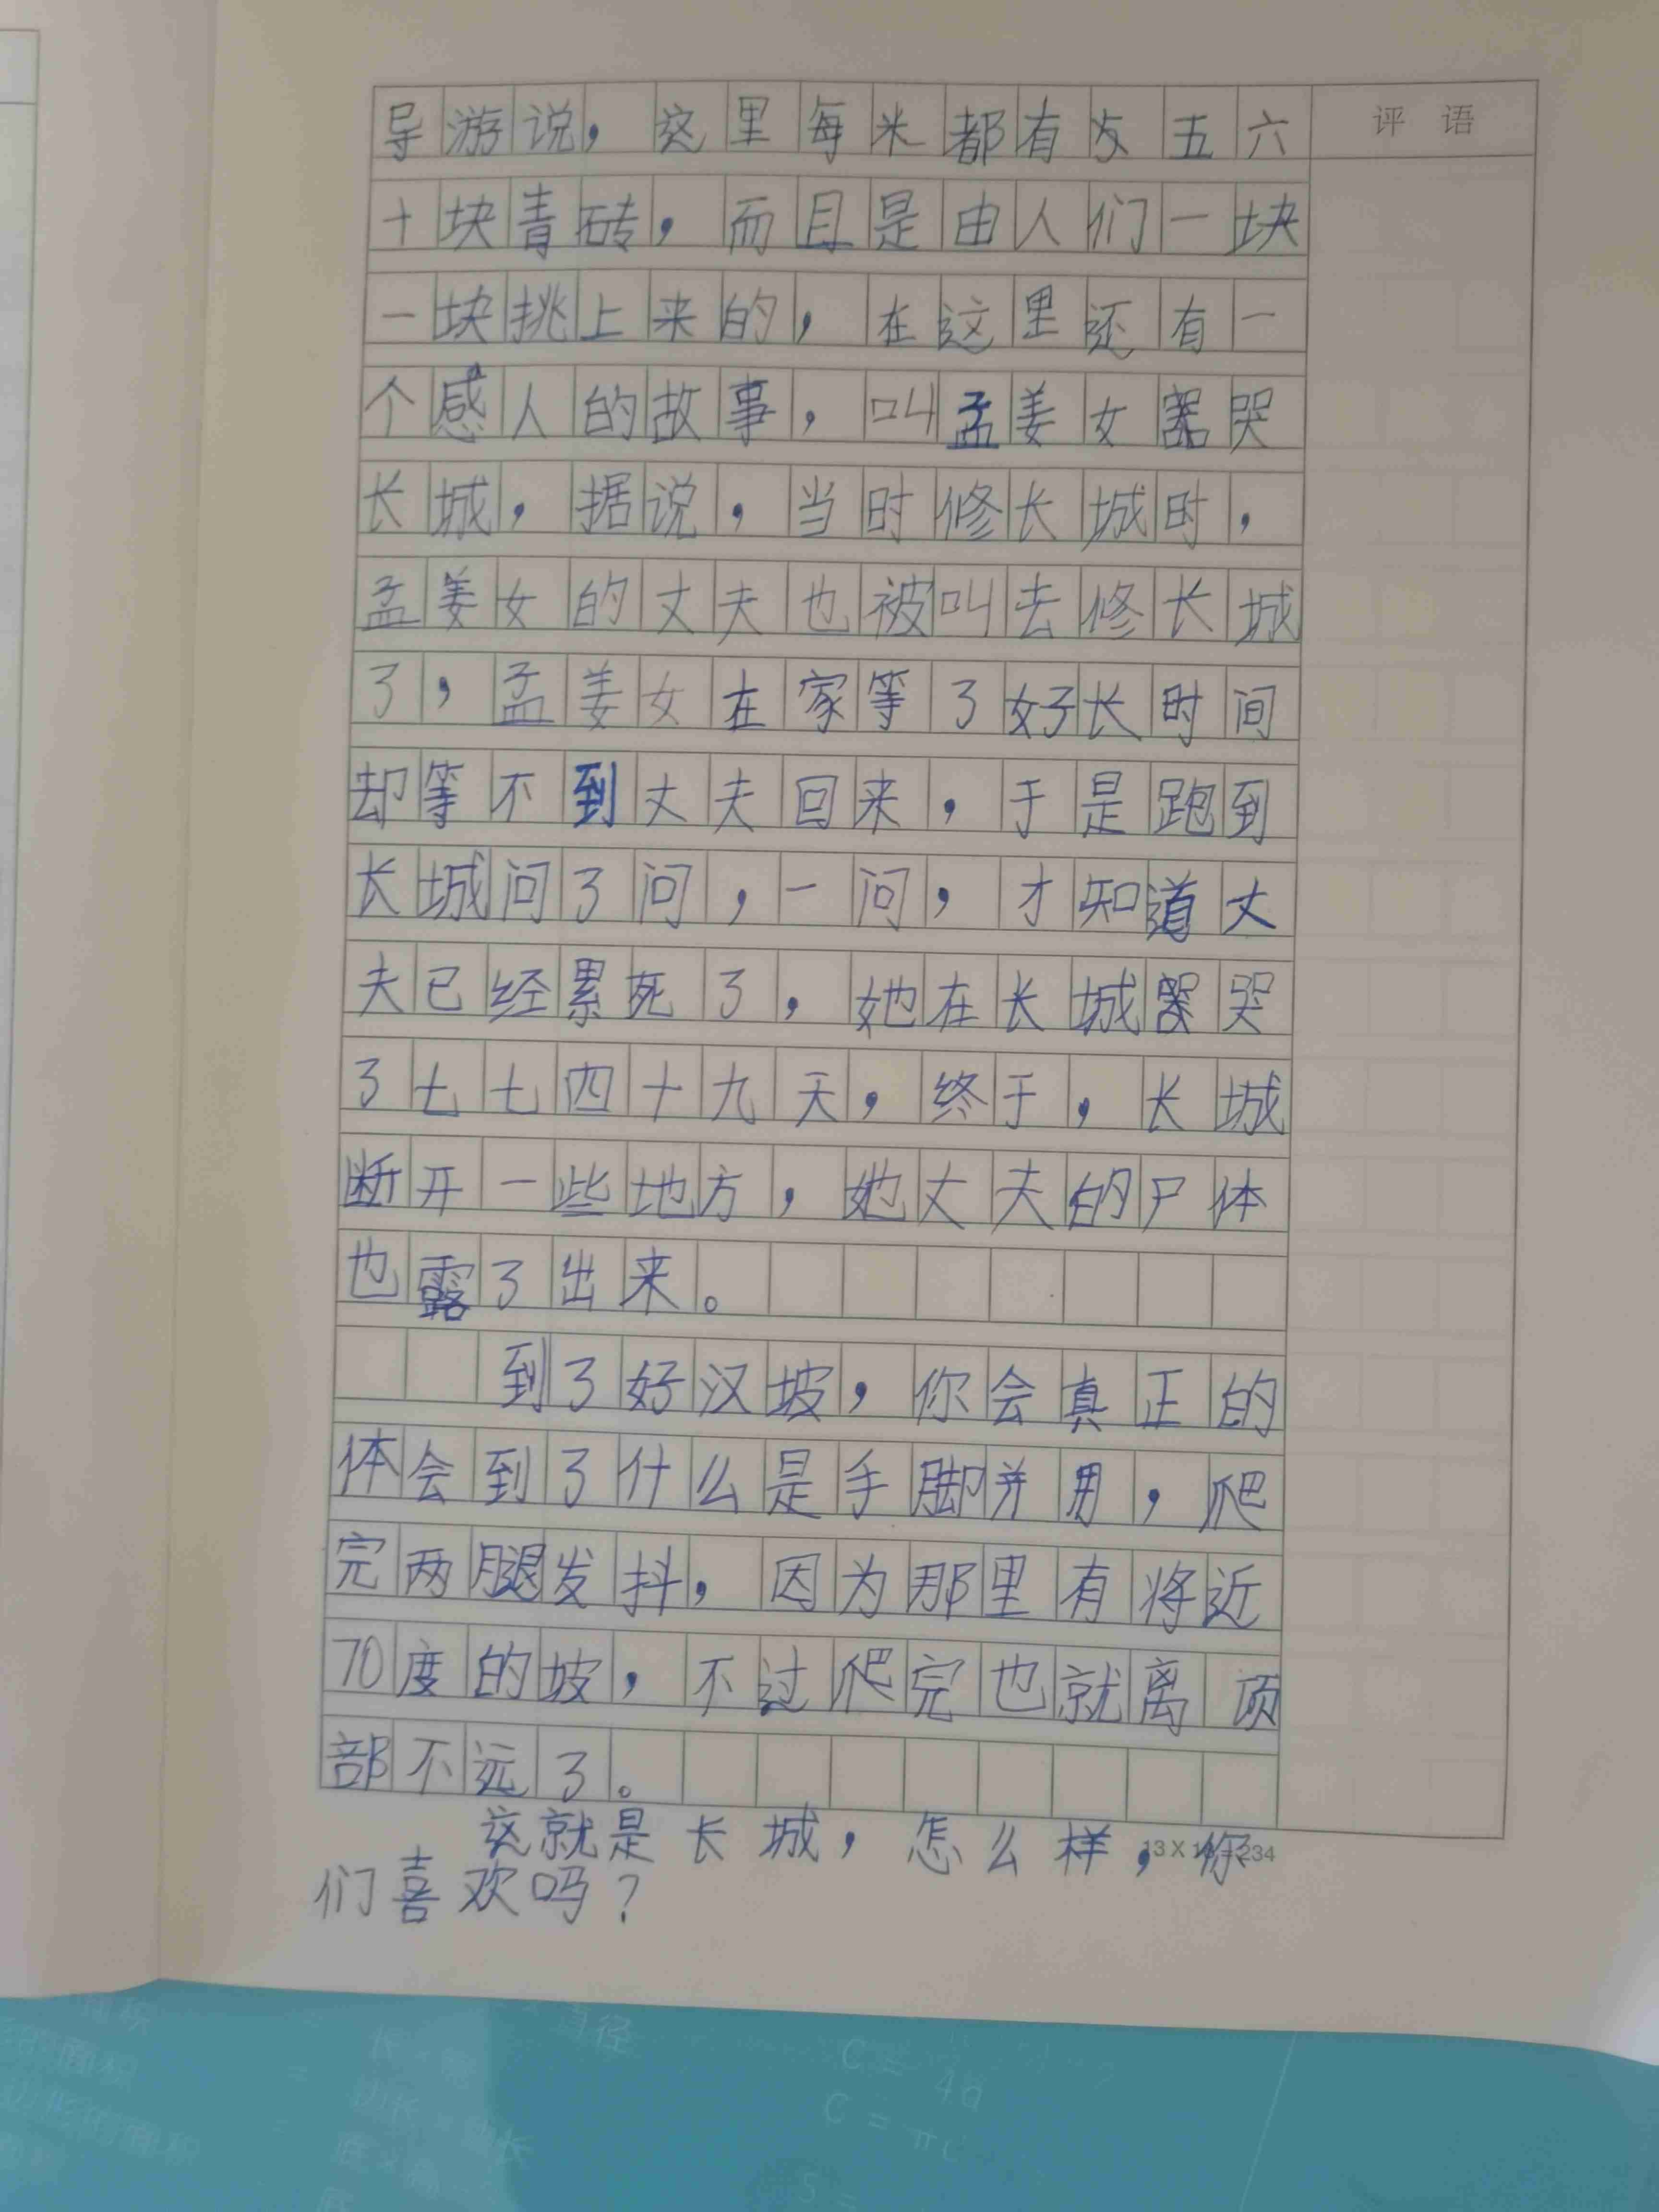 导游说，这里每米都有五六
评 语
十块青砖，而且是由人们一块
一块挑上来的，在这里还有一
个感人的故事，叫孟姜女哭
长城，据说，当时修长城时，
孟姜女的丈夫也被叫去修长城
了，孟姜女在家等了好长时间
却等不到丈夫回来，于是跑到
长城问了问，一问，才知道丈
夫已经累死了，她在长城哭
了七七四十九天，终于，长城
断开一些地方，她丈夫的尸体
也露了出来。
到了好汉坡，你会真正的
体会到了什么是手脚并用，爬
完两腿发抖，因为那里有将近
70度的坡，不过爬完也就离顶
部不远了。
这就是长城，怎么样，你
们喜欢吗？
直径
C = 4a
C = π
长